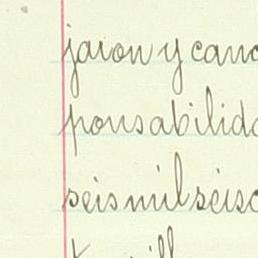 jaron y canc
ponsabilida
seis mil seisc